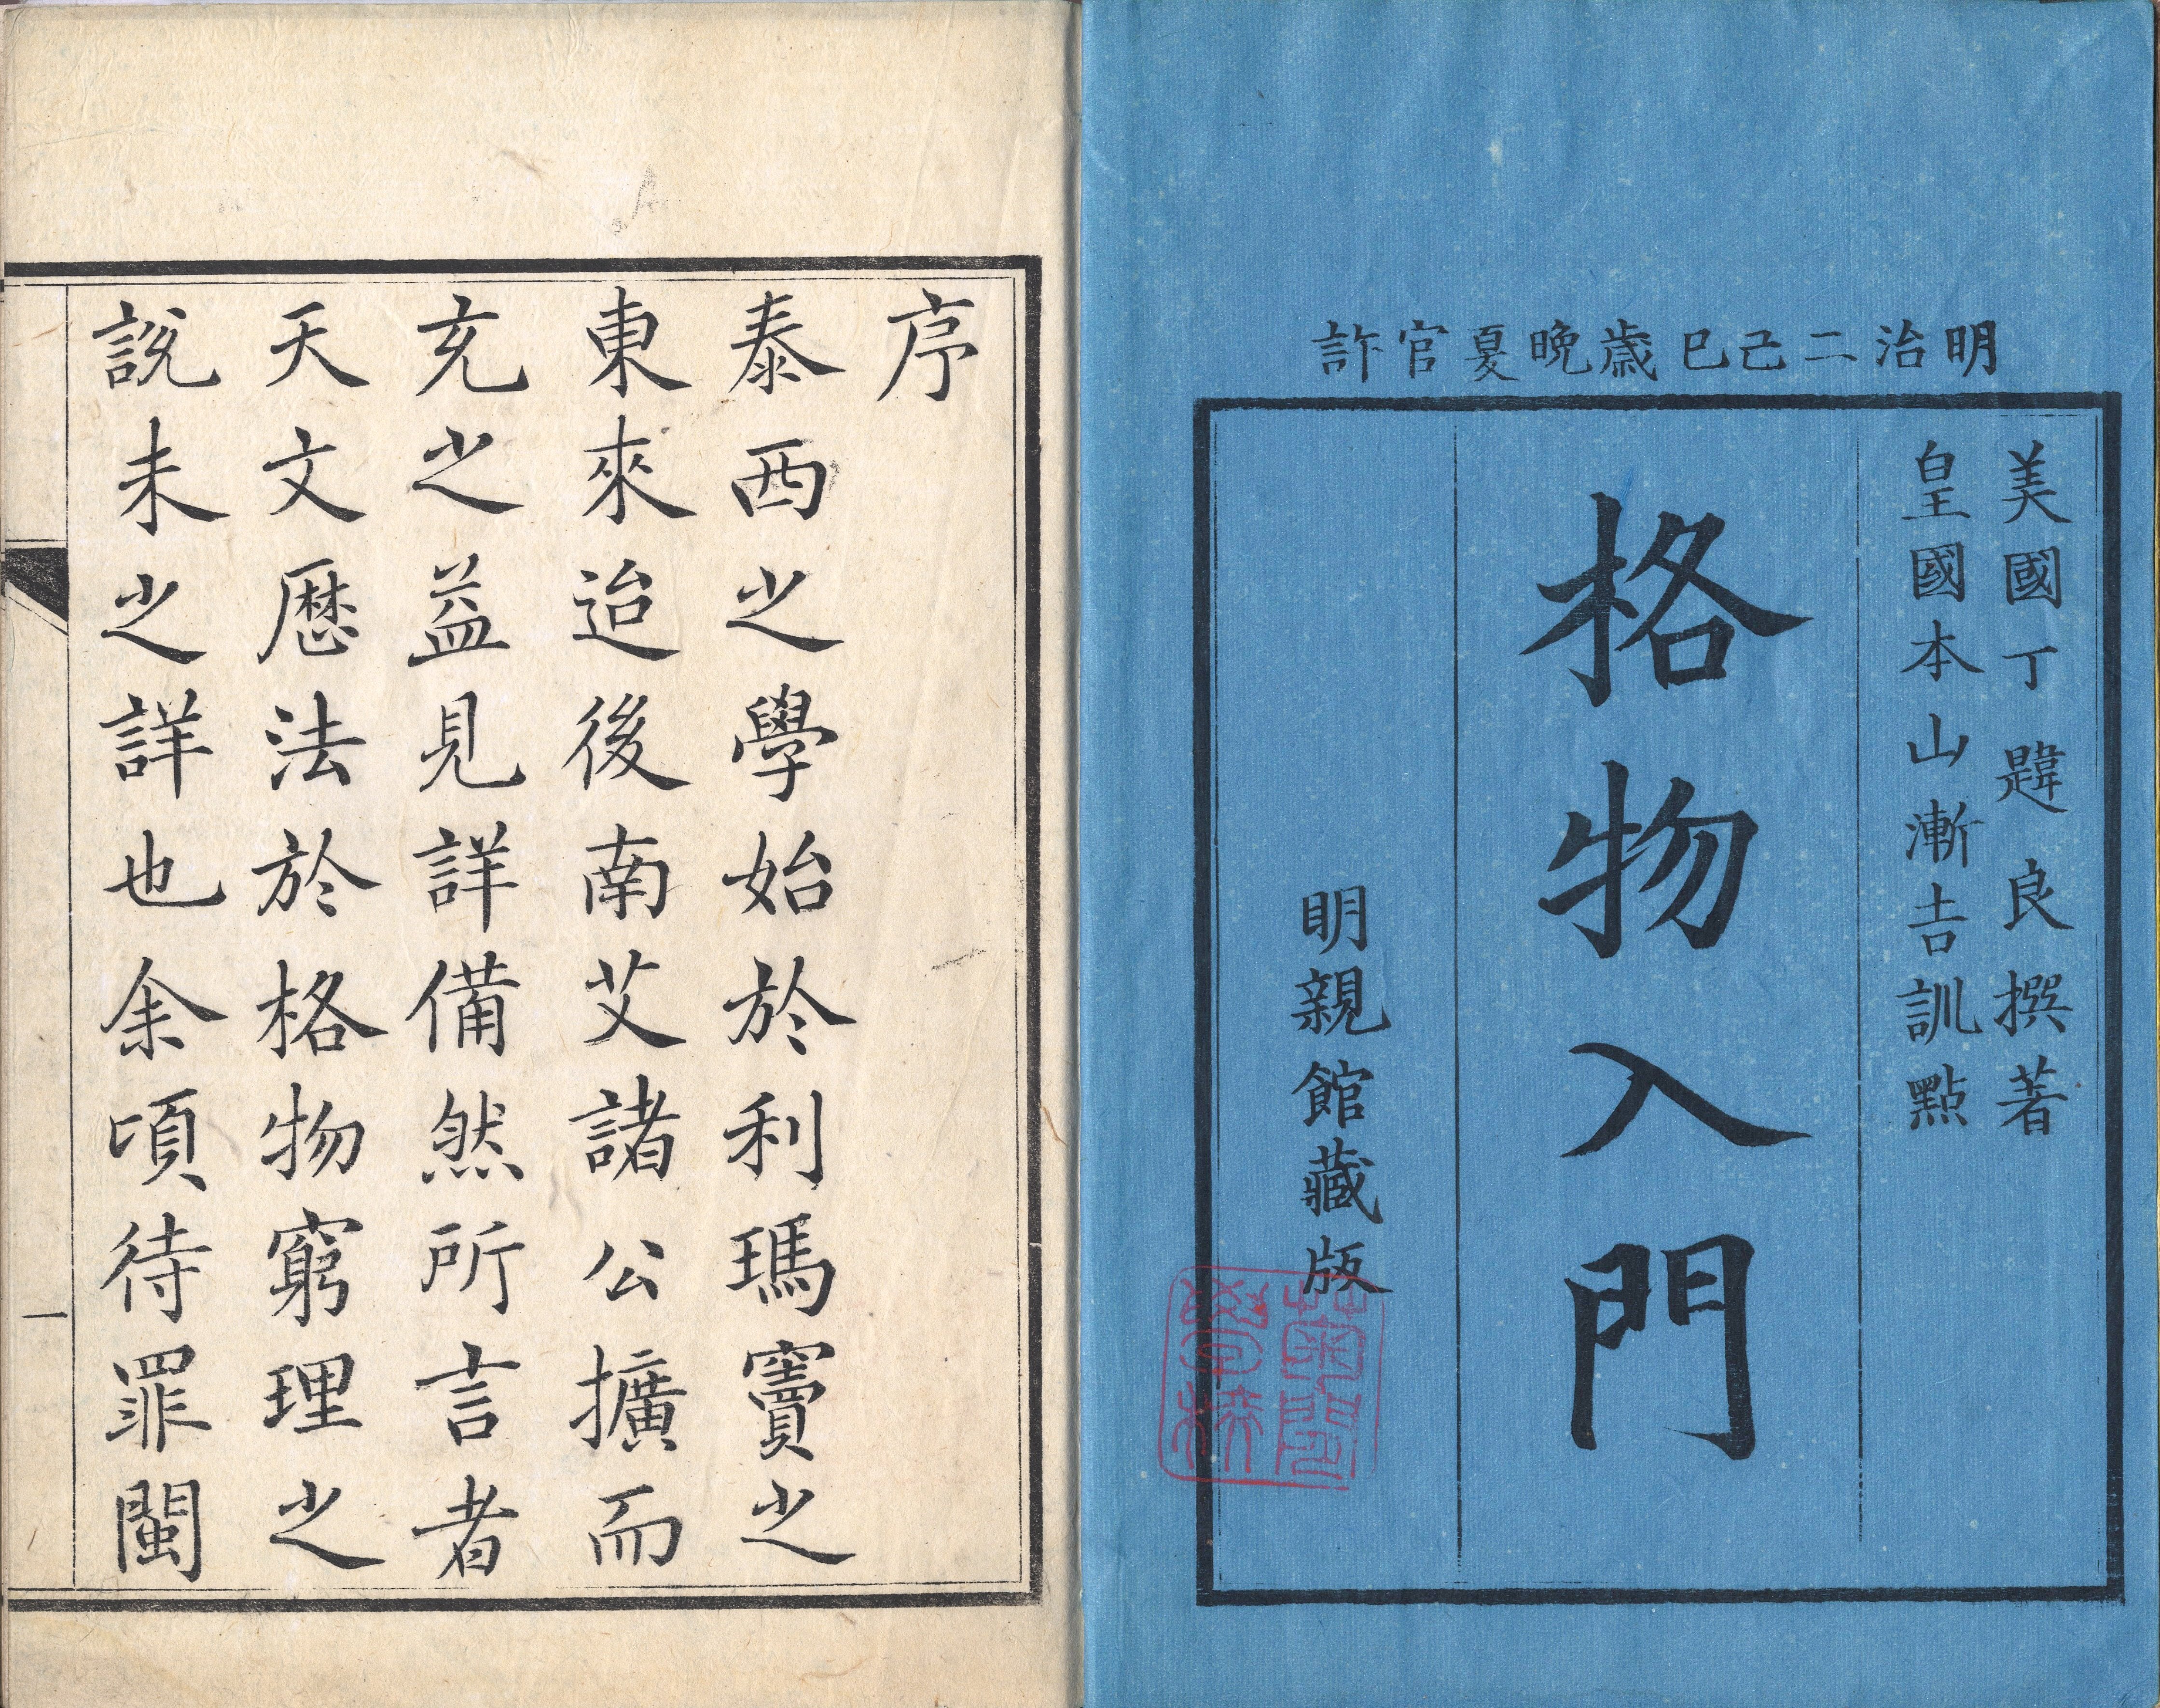 明治二己巳歳晩夏官許
美國丁韙良撰著
皇國本山漸吉訓點
格物入門
明親館藏版
序
泰西之學始於利瑪竇之
東來迨後南艾諸公擴而
充之益見詳備然所言者
天文歷法於格物窮理之
說未之詳也余頃待罪閩
一